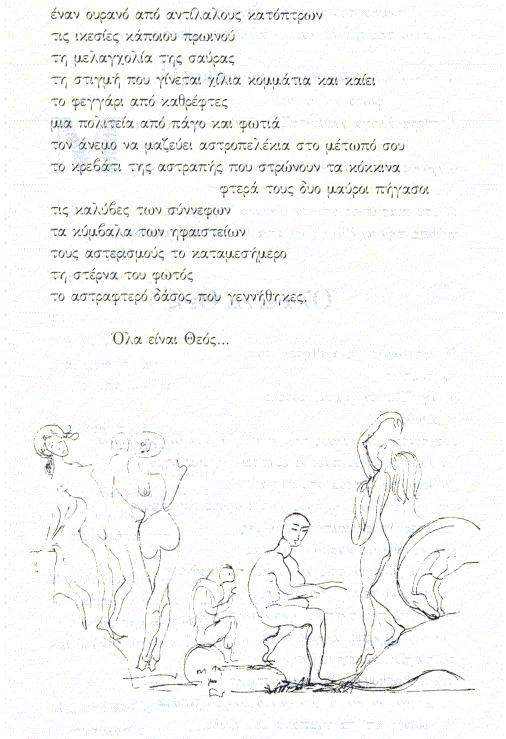 έναν ουρανό από αντίλαλους κατόπτρων
τις ικεσίες κάποιου πρωινού
τη μελαγχολία της σαύρας
τη στιγμή που γίνεται χίλια κομμάτια και καίει
το φεγγάρι από καθρέφτες
μια πολιτεία από πάγο και φωτιά
τον άνεμο να μαζεύει αστροπελέκια στο μέτωπό σου
το κρεβάτι της αστραπής που στρώνουν τα κόκκινα
φτερά τους δυο μαύροι πήγασοι
τις καλύβες των σύννεφων
τα κύμβαλα των ηφαιστείων
τους αστερισμούς το καταμεσήμερο
τη στέρνα του φωτός
το αστραφτερό δάσος που γεννήθηκες.
Όλα είναι Θεός...